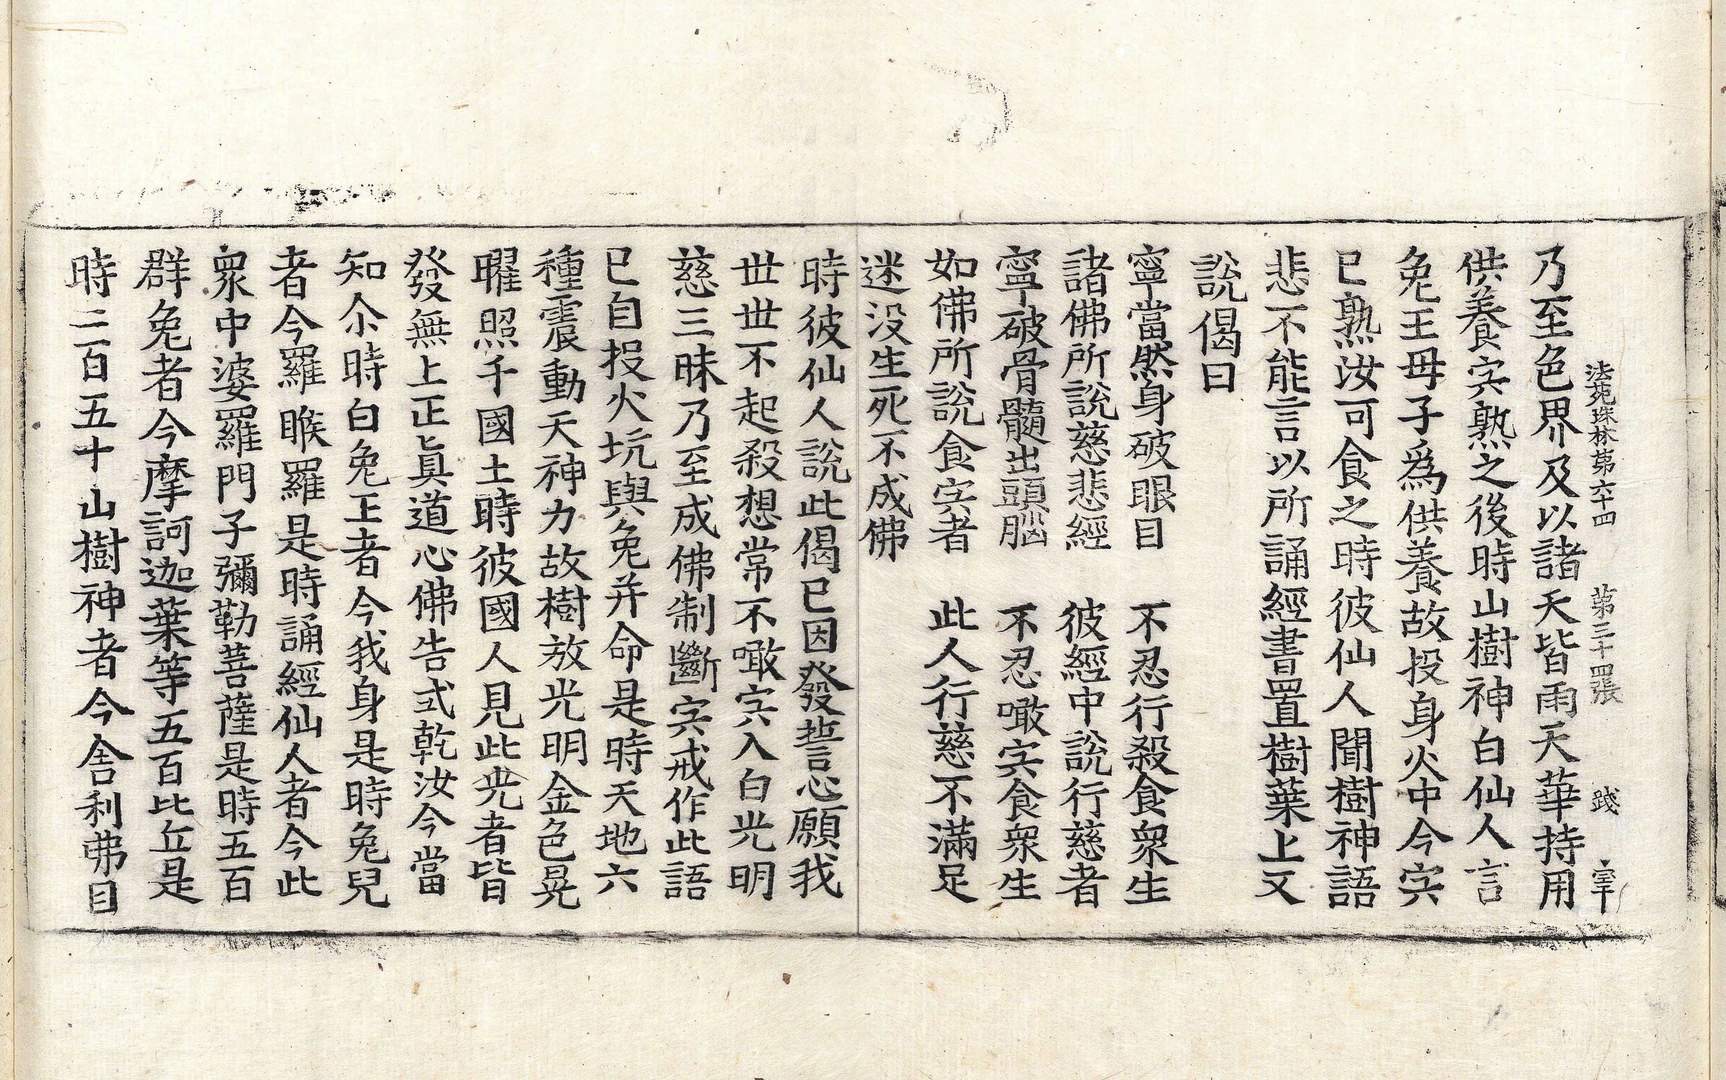 法苑珠林第六十四　第三十四張　踐　宰
乃至色界及以諸天皆雨天華持用
供養宍熟之後時山樹神白仙人言
兔王母子爲供養故投身火中今宍
已熟汝可食之時彼仙人聞樹神語
悲不能言以所誦經書置樹葉上又
說偈曰
寧當然身破眼目　不忍行殺食衆生
諸佛所說慈悲經　彼經中說行慈者
寧破骨髓出頭腦　不忍噉宍食衆生
如佛所說食宍者　此人行慈不滿足
迷没生死不成佛
時彼仙人說此偈已因發誓心願我
世世不起殺想常不噉宍入白光明
慈三昧乃至成佛制斷宍戒作此語
已自投火坑與兔并命是時天地六
種震動天神力故樹放光明金色晃
曜照千國土時彼國人見此光者皆
發無上正真道心佛告式乾汝今當
知尒時白兔王者今我身是時兔兒
者今羅睺羅是時誦經仙人者今此
衆中婆羅門子彌勒菩薩是時五百
群兔者今摩訶迦葉等五百比丘是
時二百五十山樹神者今舍利弗目